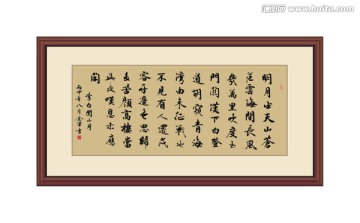 汇图网
www.huitu.com
明月出天山蒼
茫雲海間長風
幾萬里吹度玉
門關漢下白登
道胡窺青海
灣由來征戰地
不見有人還戍
客望邊色思歸
多苦顏高樓當
此夜嘆息未應
閑
李白關山月
八月
書